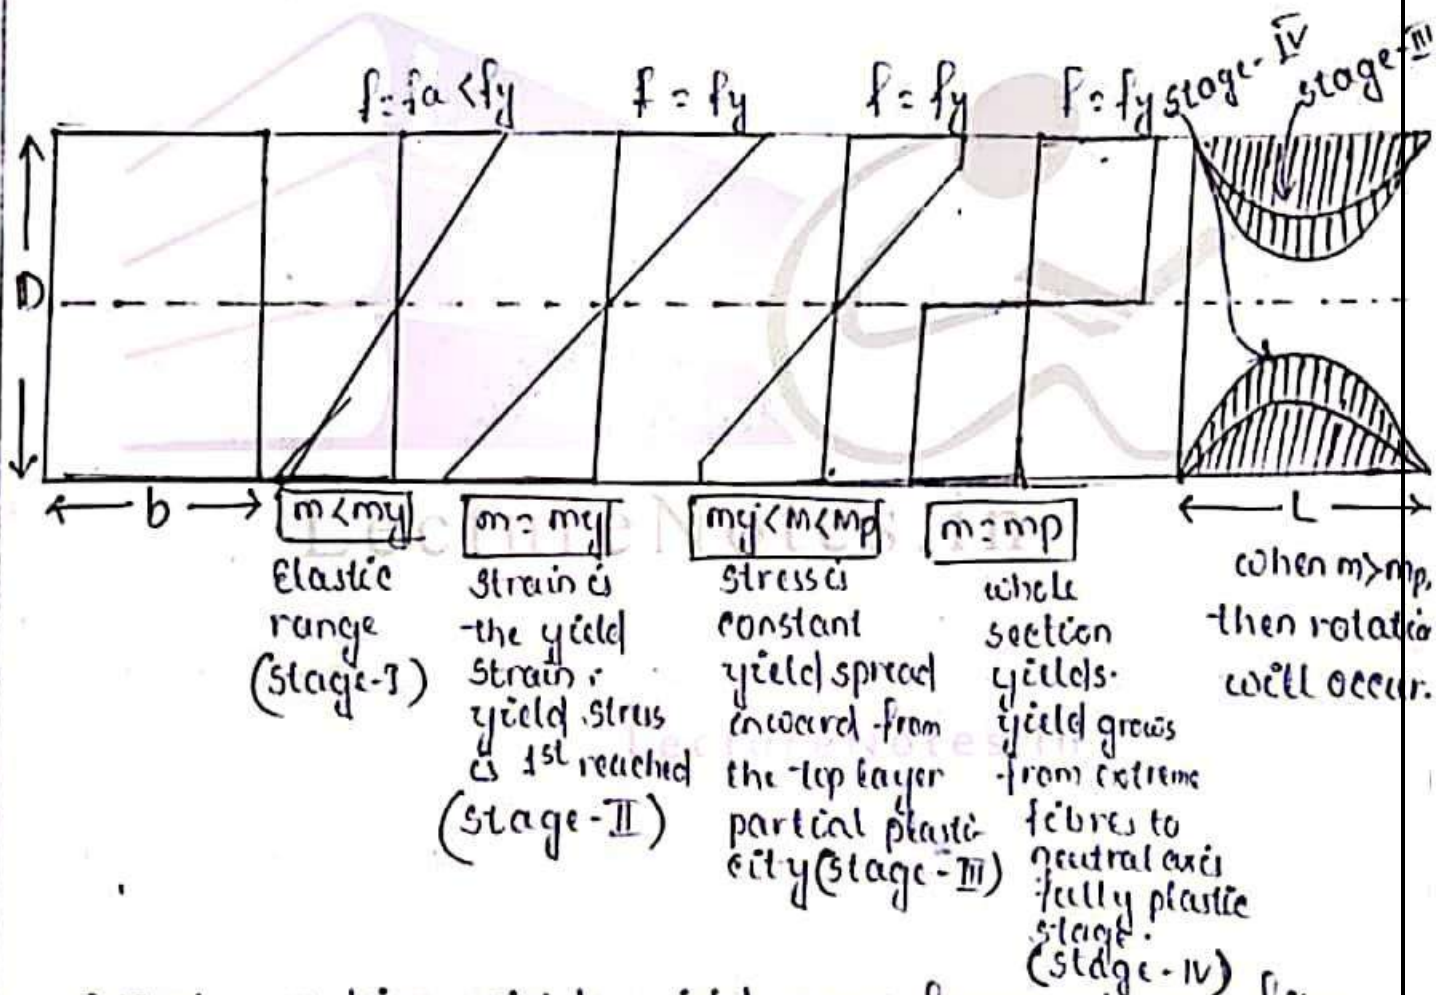 f = fa < fy
f = fy
f = fy
f = fy
stage-IV
stage-III
D
b
L
m < my
Elastic
range
(stage-I)
m = my
strain is
the yield
strain.
yield stress
is 1st reached
(stage-II)
my < M < Mp
stress is
constant
yield spread
inward from
the top layer
partial plasti-
city (stage-III)
m = mp
whole
section
yields.
yield grows
from extreme
fibres to
neutral axis
fully plastic
stage.
(stage-IV)
when m > mp,
then rotatio
will occur.
LectureNotes.in
LectureNotes.in